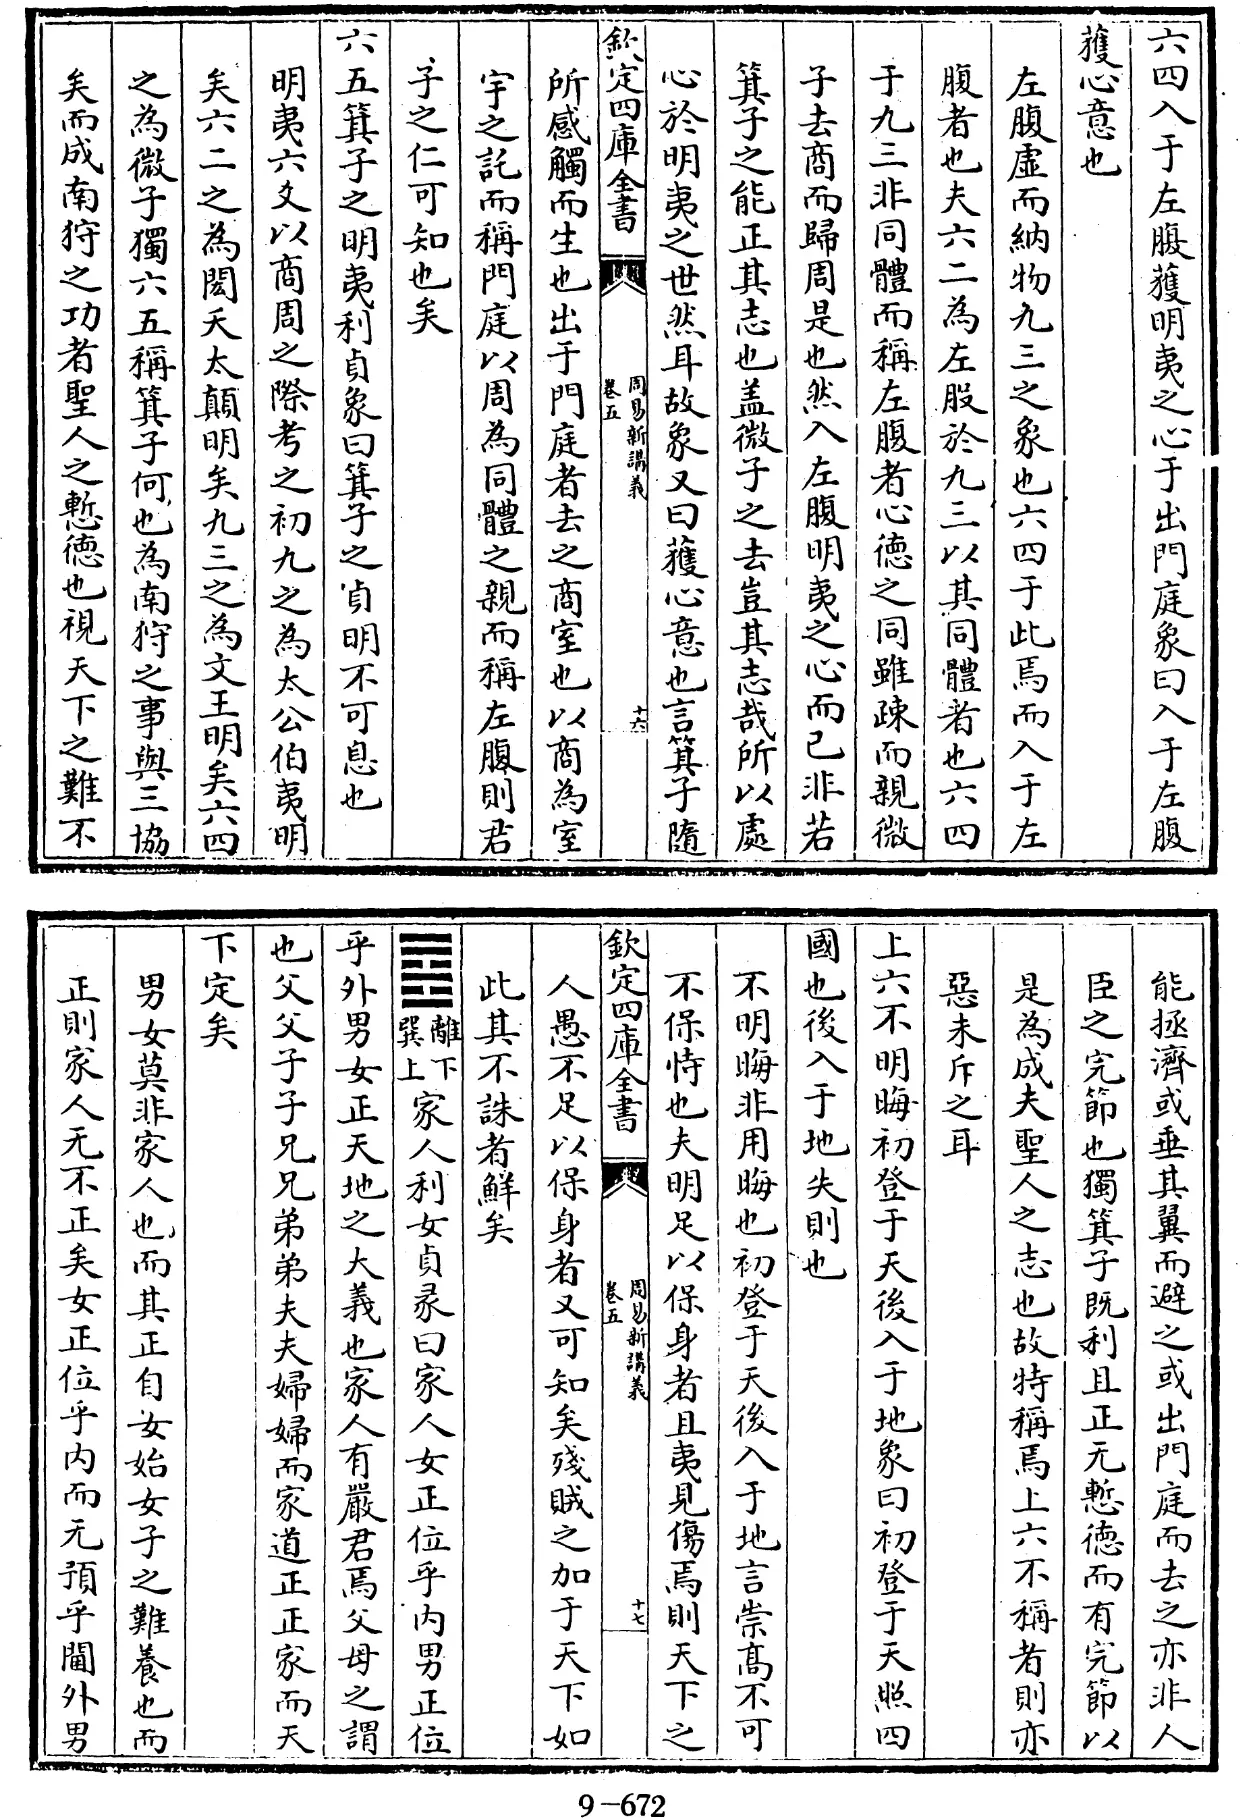 六四入于左腹獲明夷之心于出門庭象曰入于左腹
獲心意也
左腹虛而納物九三之象也六四于此焉而入于左
腹者也夫六二為左股於九三以其同體者也六四
于九三非同體而稱左腹者心德之同雖疎而親微
子去商而歸周是也然入左腹明夷之心而已非若
箕子之能正其志也蓋微子之去豈其志哉所以處
心於明夷之世然耳故象又曰獲心意也言箕子隨
欽定四庫全書
周易新講義
卷五
十六
所感觸而生也出于門庭者去之商室也以商為室
宇之託而稱門庭以周為同體之親而稱左腹則君
子之仁可知也矣
六五箕子之明夷利貞象曰箕子之貞明不可息也
明夷六爻以商周之際考之初九之為太公伯夷明
矣六二之為閎夭太顛明矣九三之為文王明矣六四
之為微子獨六五稱箕子何也為南狩之事與三協
矣而成南狩之功者聖人之慙德也視天下之難不
能拯濟或垂其翼而避之或出門庭而去之亦非人
臣之完節也獨箕子既利且正无慙德而有完節以
是為成夫聖人之志也故特稱焉上六不稱者則亦
惡未斥之耳
上六不明晦初登于天後入于地象曰初登于天照四
國也後入于地失則也
不明晦非用晦也初登于天後入于地言崇髙不可
不保恃也夫明足以保身者且夷見傷焉則天下之
欽定四庫全書
周易新講義
卷五
十七
人愚不足以保身者又可知矣殘賊之加于天下如
此其不誅者鮮矣
離下
巽上
家人利女貞彖曰家人女正位乎内男正位
乎外男女正天地之大義也家人有嚴君焉父母之謂
也父父子子兄兄弟弟夫夫婦婦而家道正正家而天
下定矣
男女莫非家人也而其正自女始女子之難養也而
正則家人无不正矣女正位乎内而无預乎閫外男
9-672